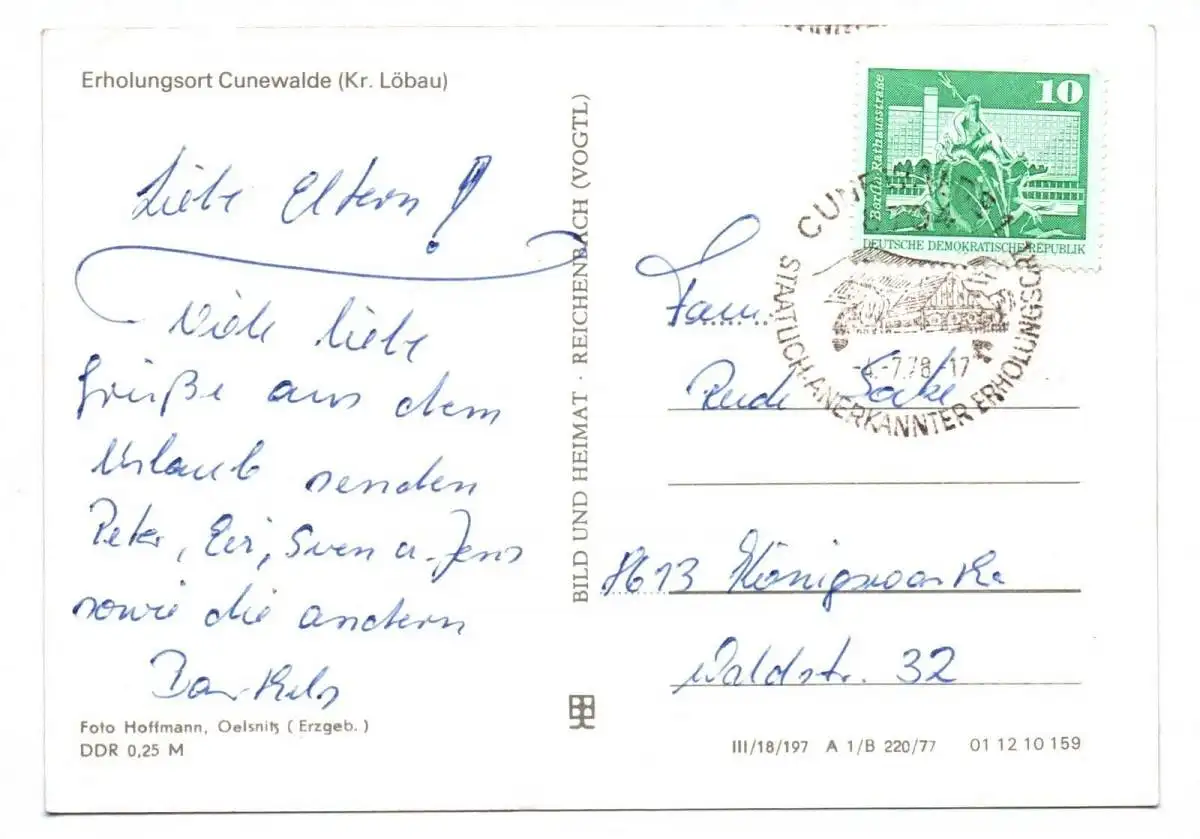 Erholungsort Cunewalde (Kr. Löbau)
Liebe Eltern!
Viele liebe
Grüße aus dem
Urlaub senden
Peter, Evi, Sven u. Jens
sowie die andern
Bartels
Foto Hoffmann, Oelsnitz (Erzgeb.)
DDR 0,25 M
BILD UND HEIMAT · REICHENBACH (VOGTL)
10
Berlin, Rathausstraße
DEUTSCHE DEMOKRATISCHE REPUBLIK
STAATLICH ANERKANNTER ERHOLUNGSORT
-7.78-17
Fam.
8613 Königswartha
Waldstr. 32
III/18/197 A 1/B 220/77 01 12 10 159